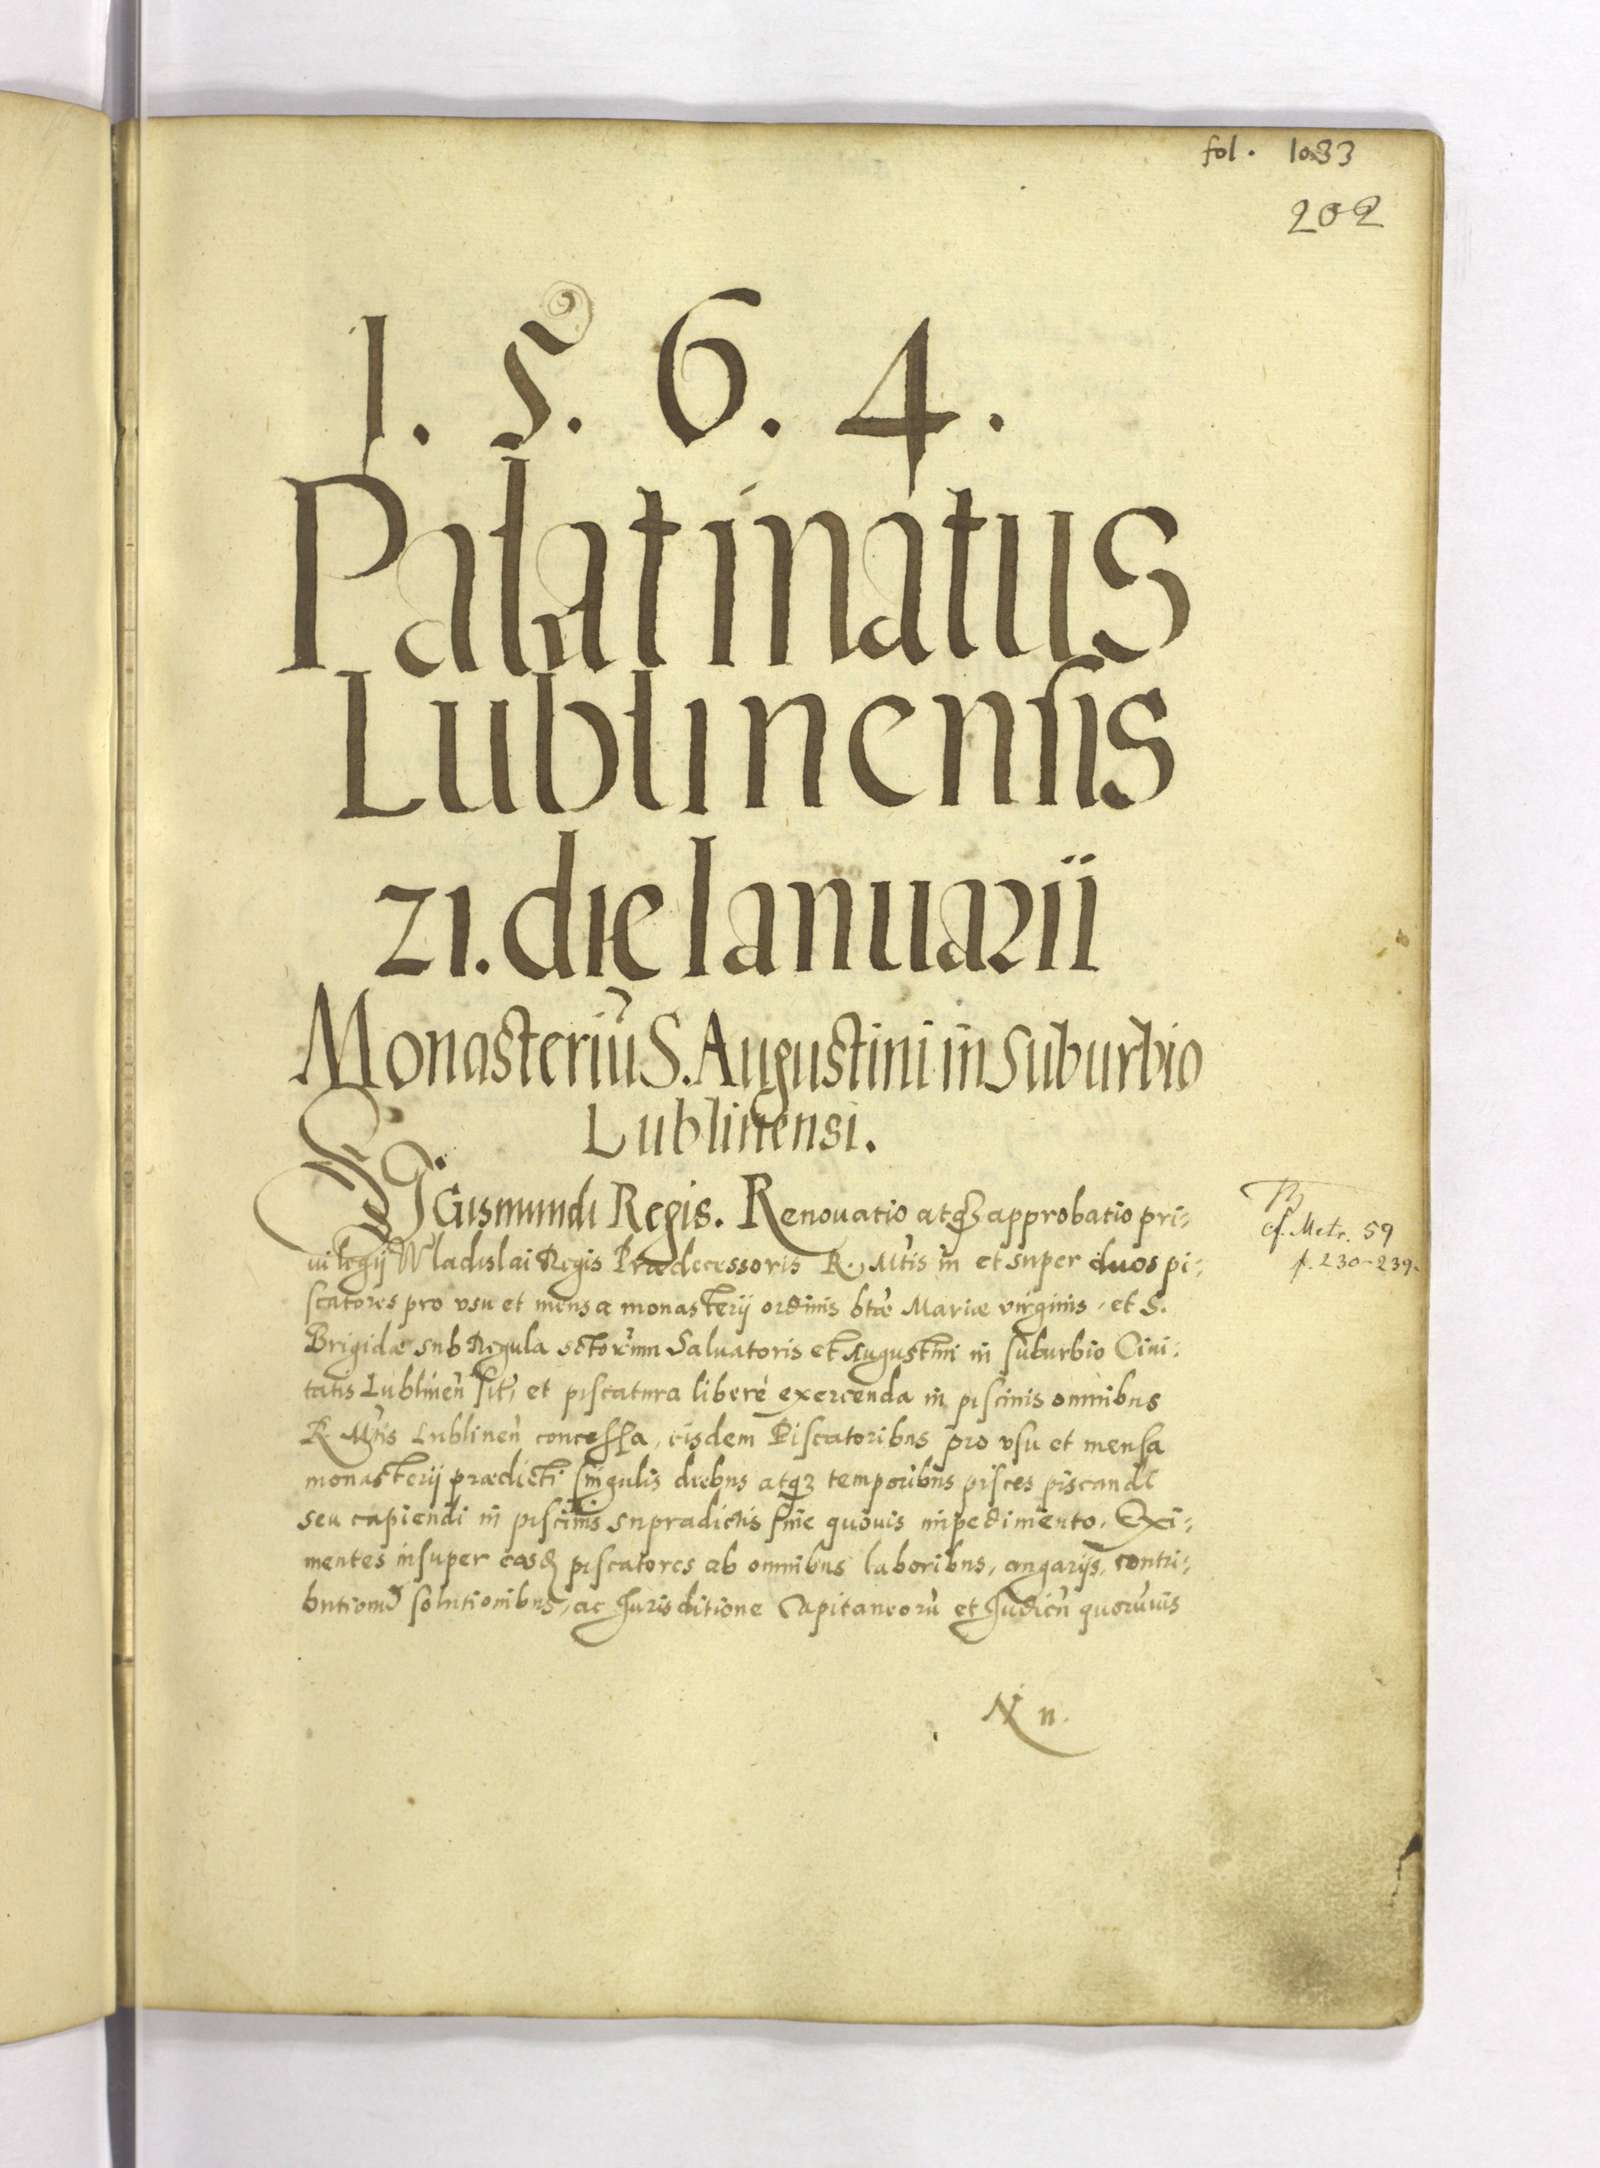 fol. 1033
202
1. 5. 6. 4.
Palatinatus
Lublinensis
21. die Ianuarii
Monasteriũ S. Augustini in suburbio
Lublinensi.
SIGismundi Regis. Renouatio atq3 approbatio pri-
uilegij Wladislai Regis Prædecessoris R. Mtis in et super duos pi-
scatores pro vsu et mensa monasterij ordinis btæ Mariæ virginis, et S.
Brigidæ sub Regula sctorum Saluatoris et Augustini in suburbio Ciui-
tatis Lublineñ sit, et piscatura liberé exercenda in piscinis omnibus
R. Mtis Lublineñ concessa, eisdem Piscatoribus pro vsu et mensa
monasterij prædicti singulis diebus atq3 temporibus pisces piscandi
seu capiendi in piscinis supradictis sine quouis impedimento. Exi-
mentes insuper eosd piscatores ab omnibus laboribus, angarijs, contri-
butionũ solutionibus, ac Jurisditione Capitaneorũ et Judicũ quorũuis
N n.
cf. Metr. 59
f. 230-239.